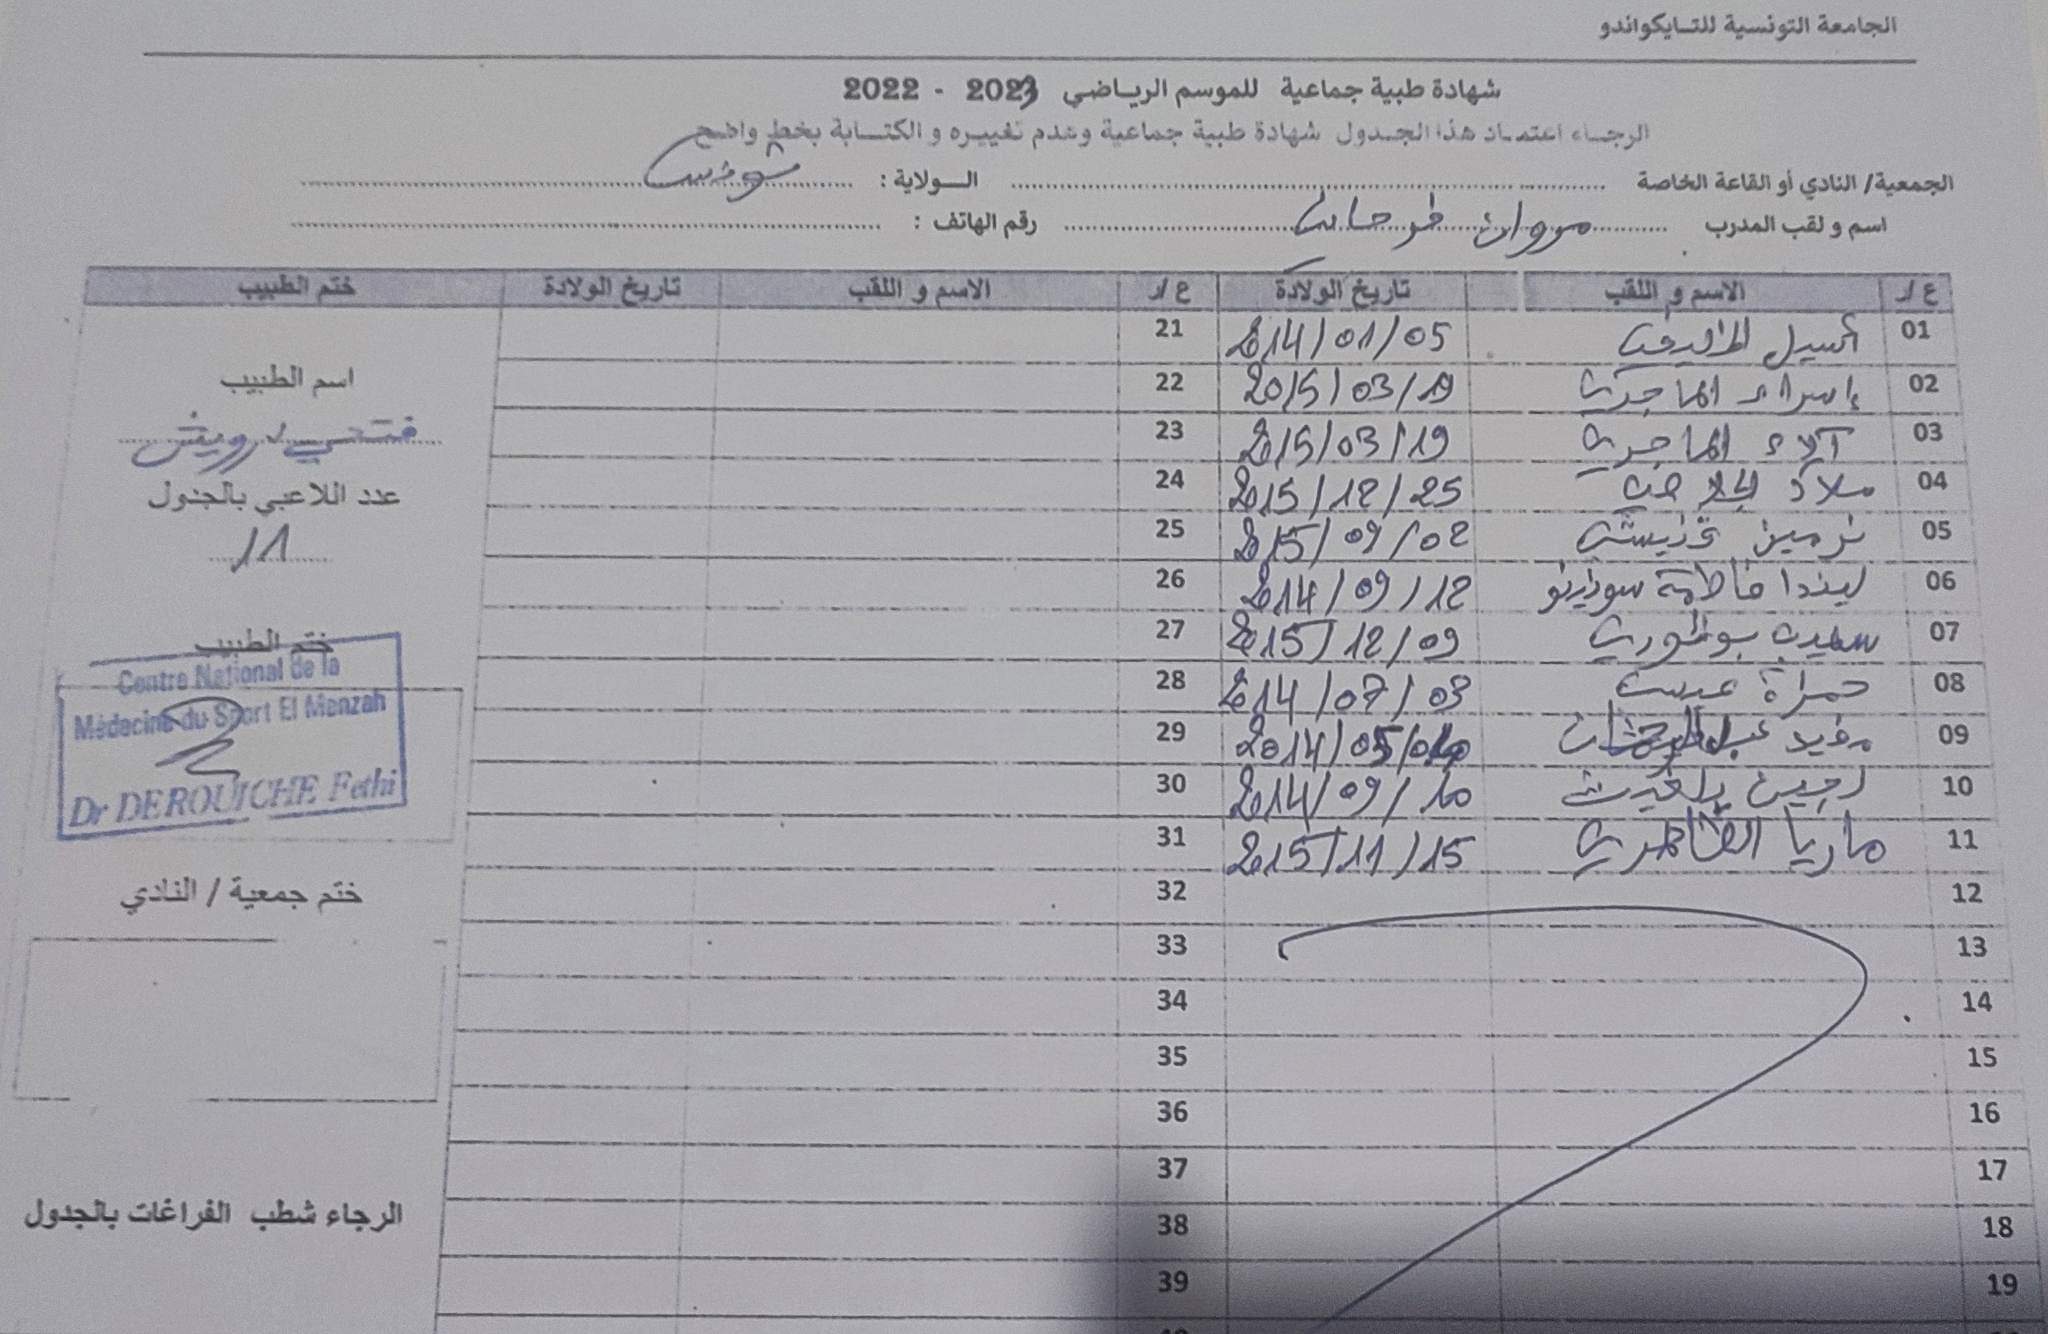 الجامعة التونسية للتايكواندو
شهادة طبية جماعية للموسم الرياضي 2023 - 2022
الرجاء اعتماد هذا الجدول شهادة طبية جماعية وعدم تغييره و الكتابة بخط واضح
الجمعية/ النادي أو القاعة الخاصة ........ الولاية : تونس
اسم و لقب المدرب مروان فرحاني رقم الهاتف : ........
ع /ر الاسم و اللقب تاريخ الولادة ع /ر الاسم و اللقب تاريخ الولادة ختم الطبيب
01 أسيل 2014/01/05 21
02 إسراء الماجري 2015/03/19 22
03 آلاء الماجري 2015/03/19 23
04 ملاك 2015/12/25 24
05 نرمين 2015/09/02 25
06 ليندا فاطمة 2014/09/12 26
07 2015/12/09 27
08 حمزة 2014/07/03 28
09 مفيد 2014/05/ 29
10 لجين 2014/09/10 30
11 ماريا الطاهري 2015/11/15 31
12 32
13 33
14 34
15 35
16 36
17 37
18 38
19 39
اسم الطبيب
فتحي درويش
عدد اللاعبي بالجدول
11
ختم الطبيب
Centre National de la
Médecine du Sport El Menzah
Dr DEROUICHE Fethi
ختم جمعية / النادي
الرجاء شطب الفراغات بالجدول